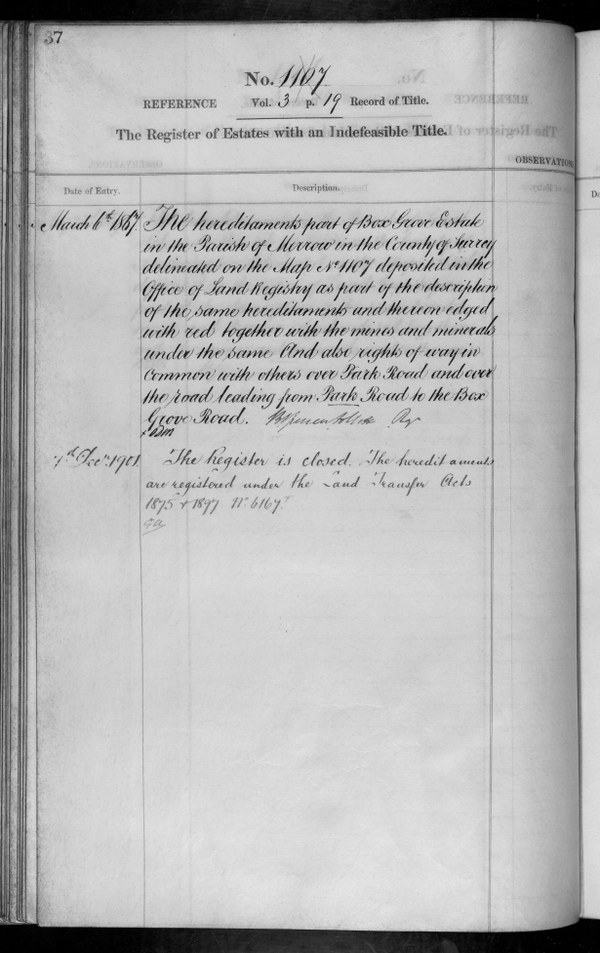 37
No. 1107
REFERENCE Vol. 3 p. 19 Record of Title.
The Register of Estates with an Indefeasible Title.
OBSERVATIONS
Date of Entry. Description.
March 6th 1867. The hereditaments part of Box Grove Estate
in the Parish of Merrow in the County of Surrey
delineated on the Map No 1107 deposited in the
Office of Land Registry as part of the description
of the same hereditaments and thereon edged
with red together with the mines and minerals
under the same And also rights of way in
Common with others over Park Road and over
the road leading from Park Road to the Box
Grove Road.
7th Decr. 1901. The Register is closed. The hereditaments
are registered under the Land Transfer Acts
1875 & 1897 No 6167.